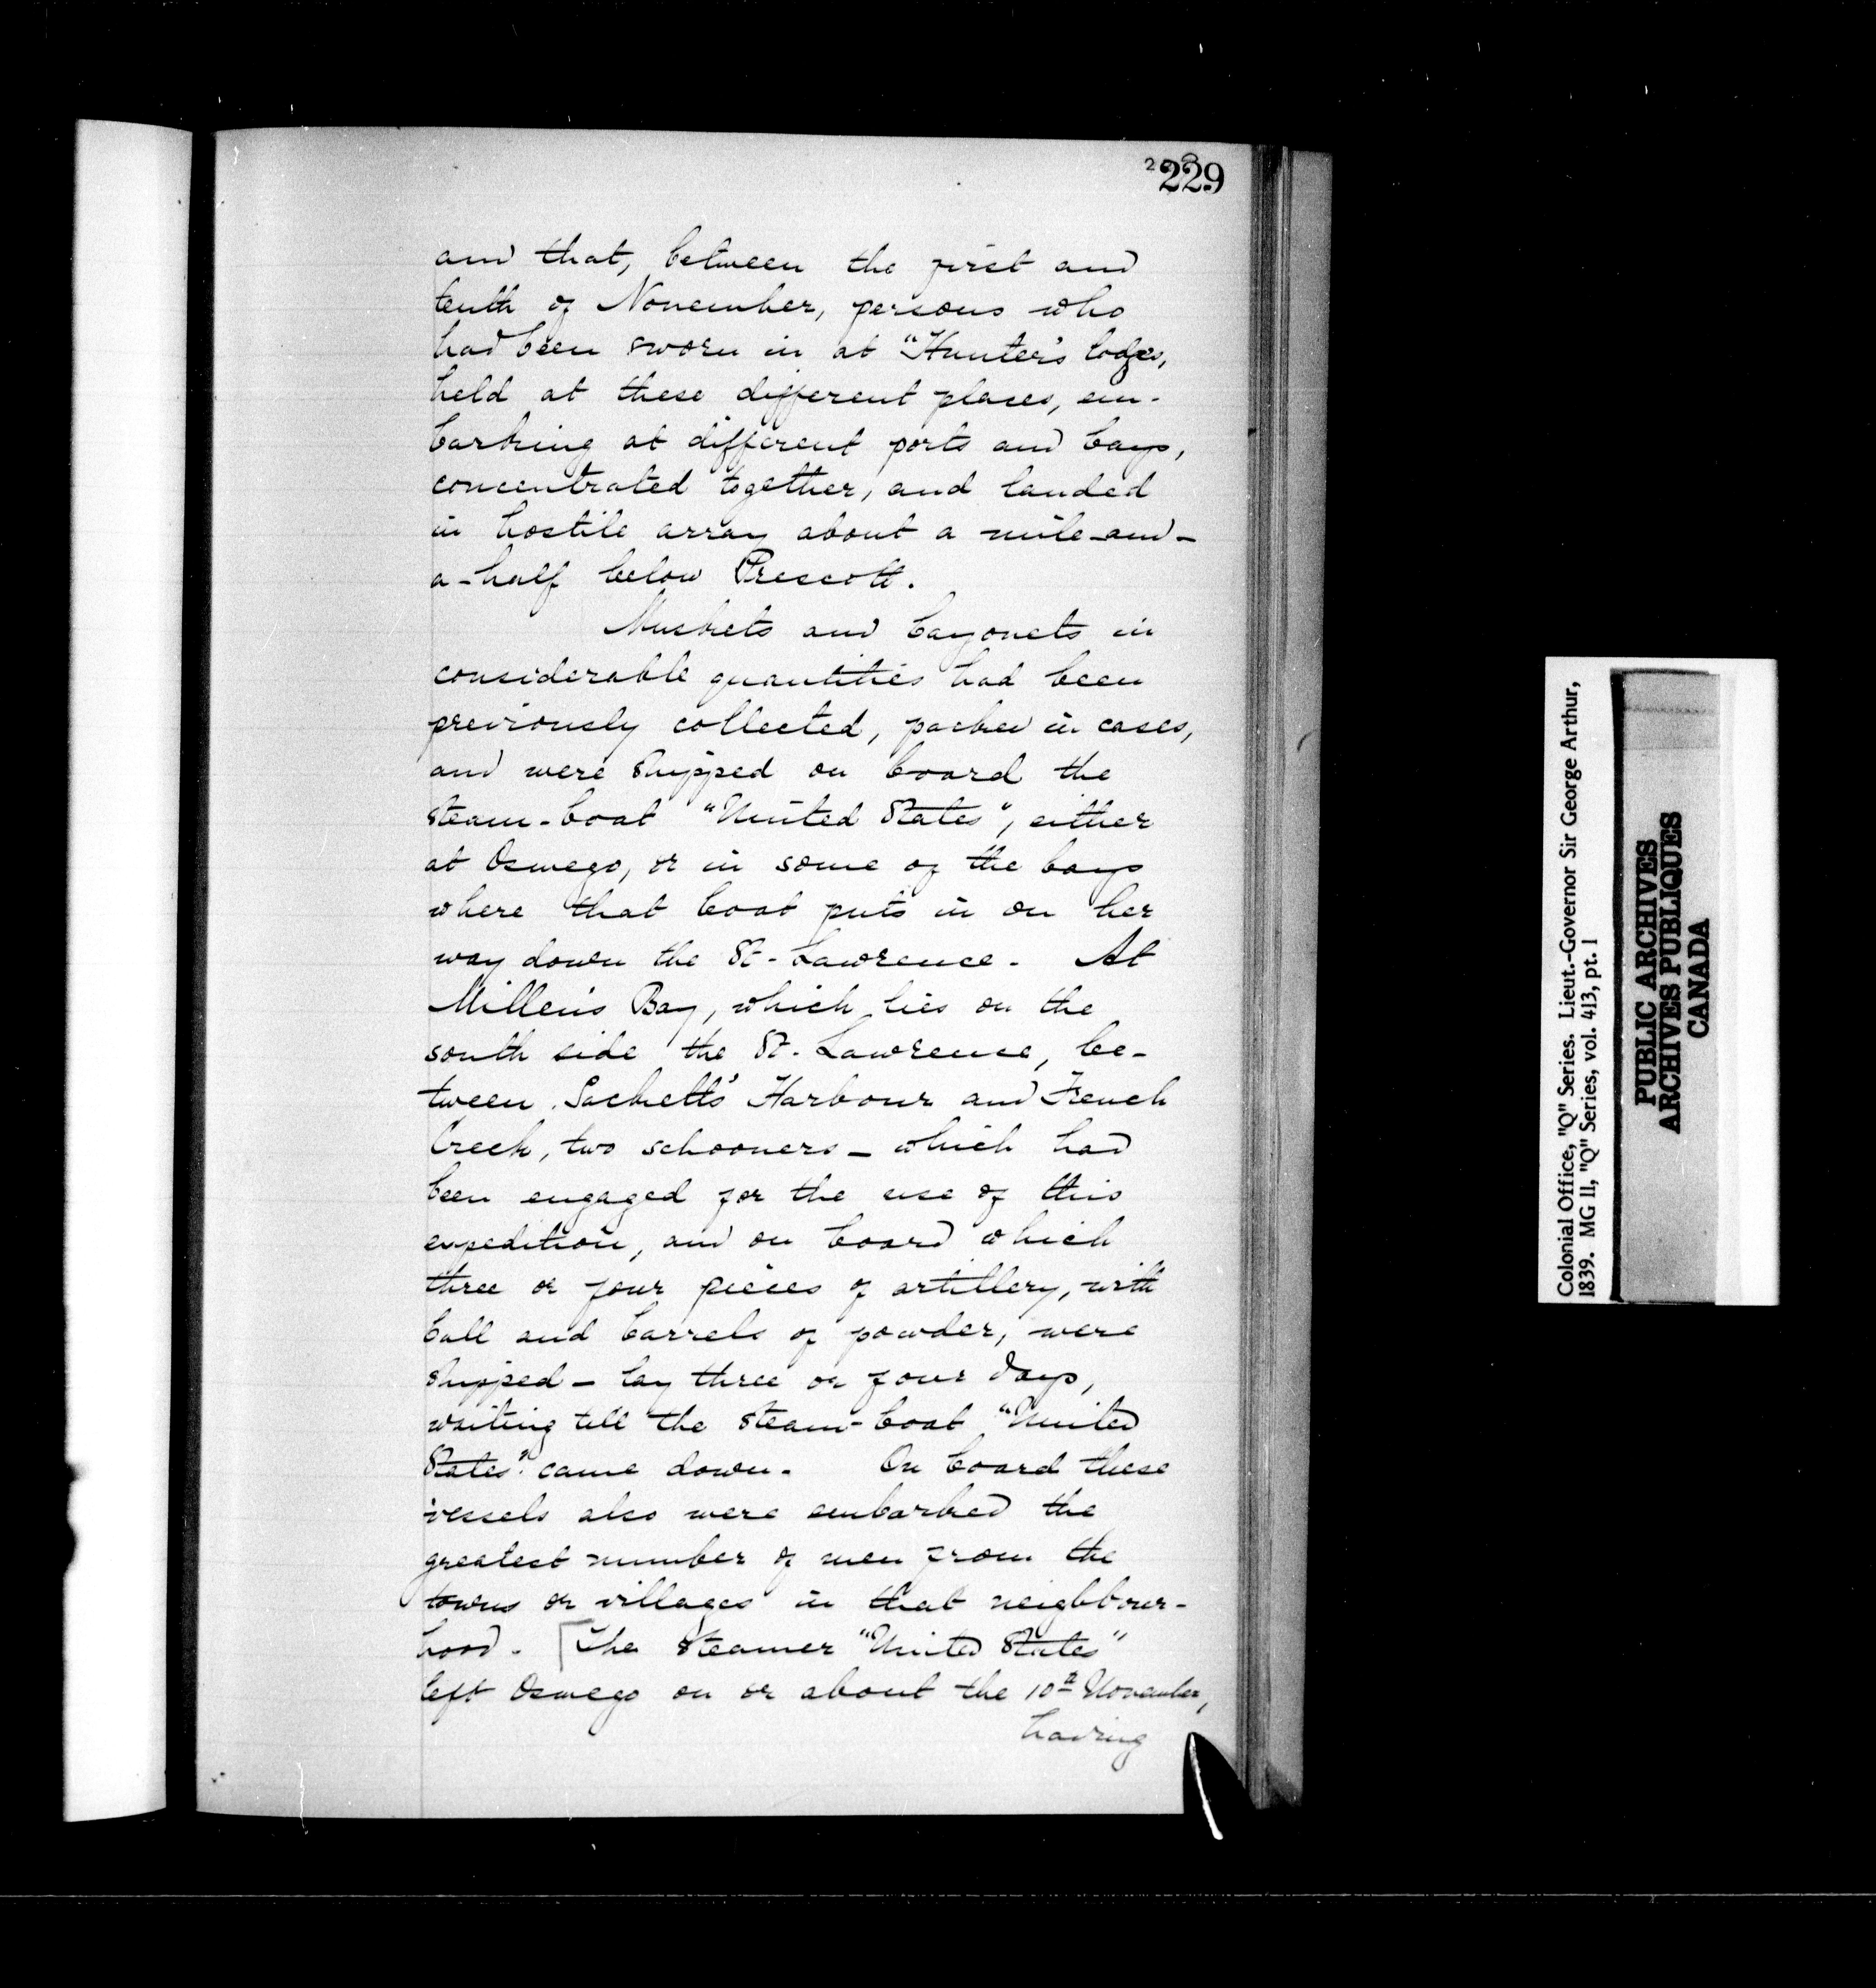 229
and that, between the first and
tenth of November, persons who
had been sworn in at "Hunter's lodges,
held at these different places, em-
barking at different ports and bays,
concentrated together, and landed
in hostile array about a mile-and-
a-half below Prescott.
Muskets and bayonets in
considerable quantities had been
previously collected, packed in cases,
and were shipped on board the
steam-boat "United States", either
at Oswego, or in some of the bays
where that boat puts in on her
way down the St. Lawrence. At
Millen's Bay, which lies on the
south side the St. Lawrence, be-
tween Sackett's Harbour and French
Creek, two schooners - which had
been engaged for the use of this
expedition, and on board which
three or four pieces of artillery, with
ball and barrels of powder, were
shipped - lay three or four days,
waiting till the steam-boat "United
States" came down. On board these
vessels also were embarked the
greatest number of men from the
towns or villages in that neighbour-
hood. [The steamer "United States"
left Oswego on or about the 10th November,
having
Colonial Office, "Q" Series. Lieut.-Governor Sir George Arthur,
1839. MG 11, "Q" Series, vol. 413, pt. 1
PUBLIC ARCHIVES
ARCHIVES PUBLIQUES
CANADA